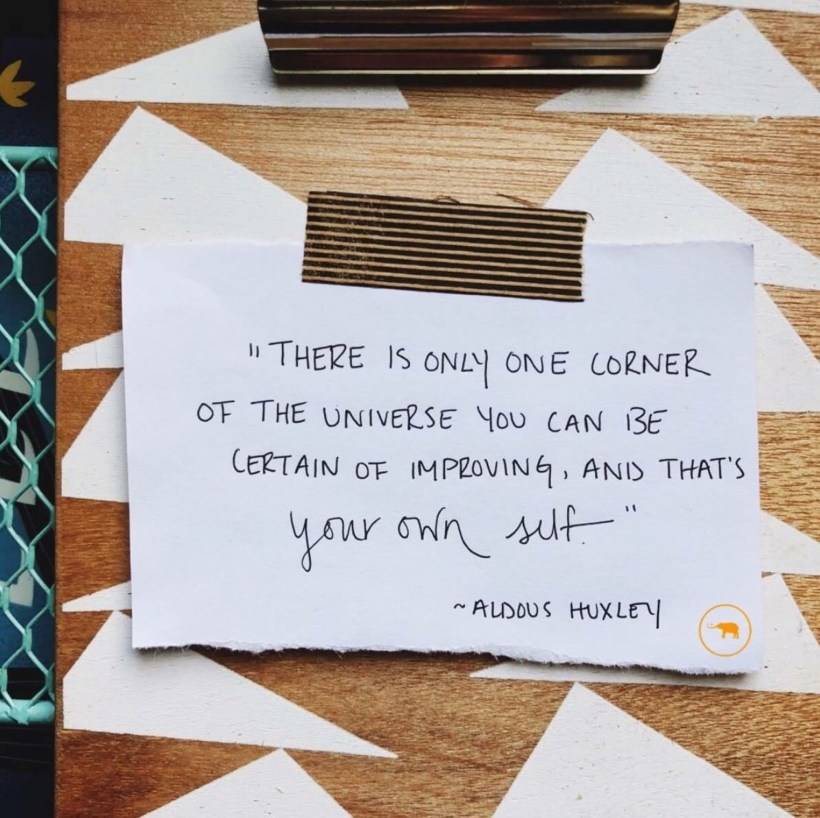 "THERE IS ONLY ONE CORNER
OF THE UNIVERSE YOU CAN BE
CERTAIN OF IMPROVING, AND THAT'S
your own self."
~ALDOUS HUXLEY